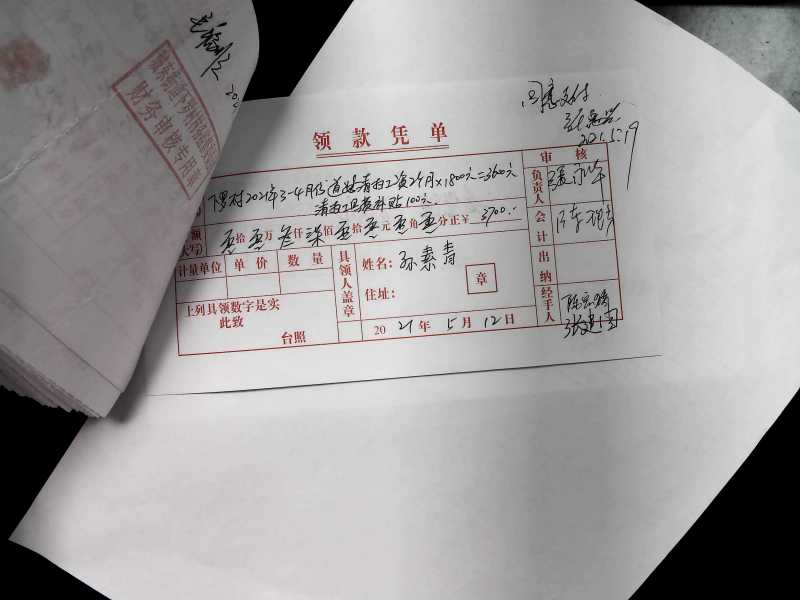 财务审核专用章
202
同意支付
2021.5.19
领款凭单
下罗村2021年3-4月份道路清扫工资2个月×1800元=3600元
清扫工具费补贴100元
额
大写)
拾 万 叁仟 柒佰 拾 元 角 分正￥ 3700..
计量单位 单价 数量
上列具领数字是实
此致
台照
具领人盖章
姓名: 孙素青
住址:
章
2021年5月12日
审核
负责人
会计
出纳
经手人
张建国